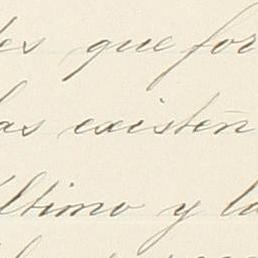 que for
as existen
último y la